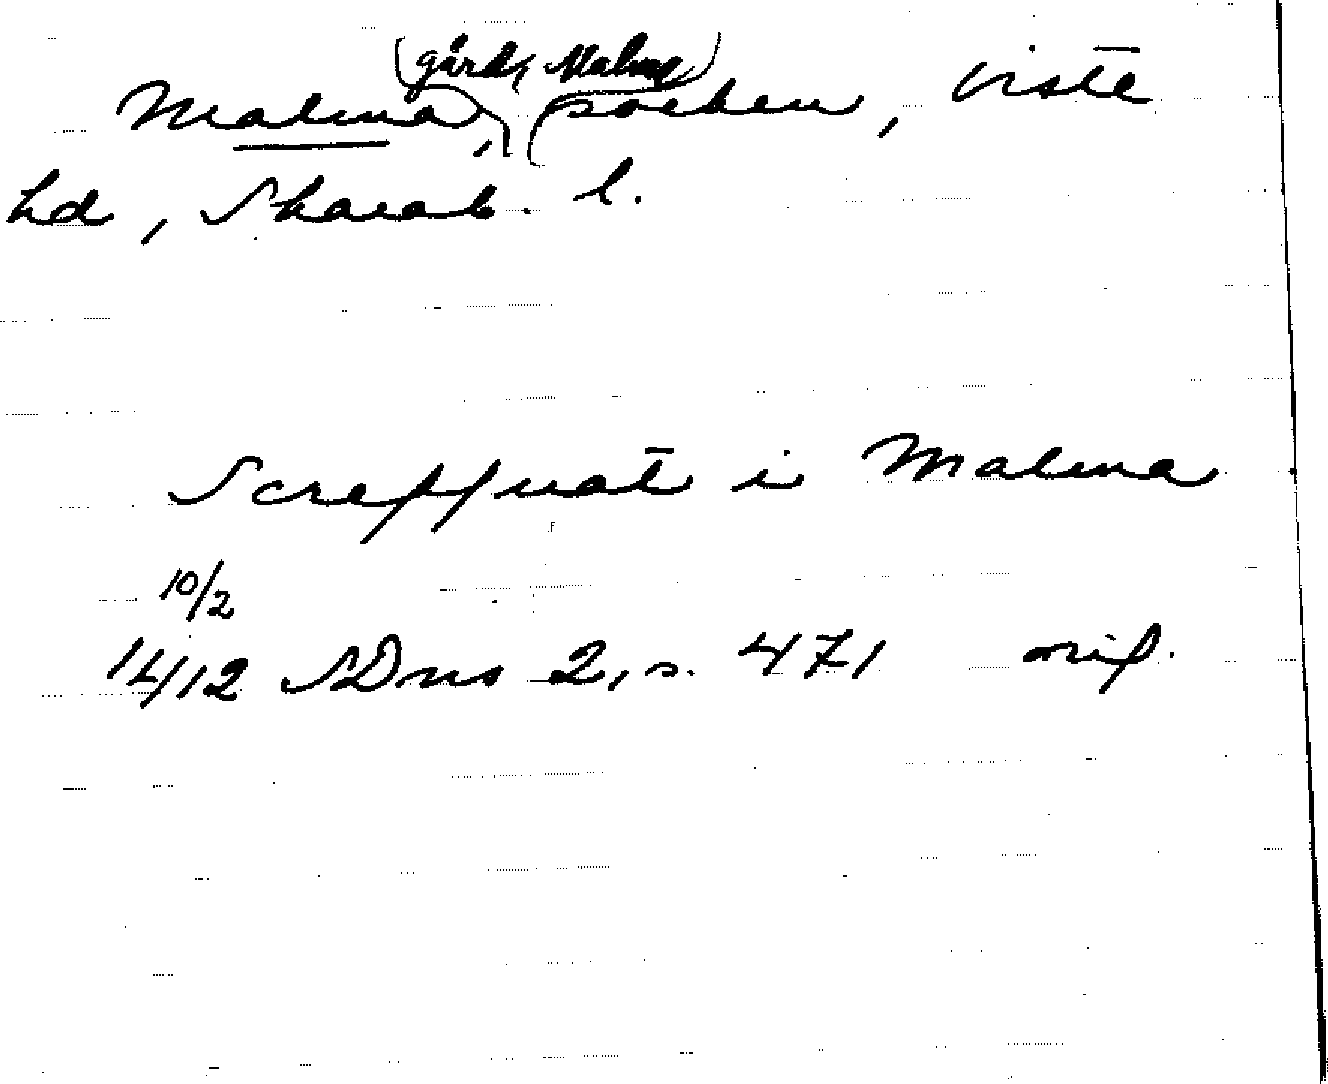 (gård, Malma)
Malma, socken, Viste
hd, Skarab. l.
Screffuat i Malma
10/2
1412 SDns 2, s. 471 orig.